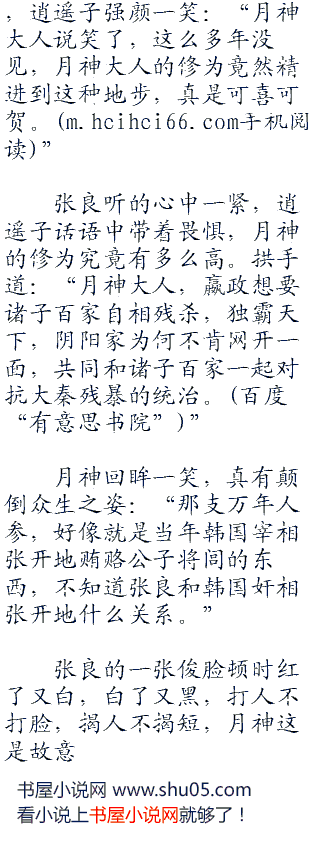 ，逍遥子强颜一笑：“月神
大人说笑了，这么多年没
见，月神大人的修为竟然精
进到这种地步，真是可喜可
贺。(m.hcihci66.com手机阅
读)”
张良听的心中一紧，逍
遥子话语中带着畏惧，月神
的修为究竟有多么高。拱手
道：“月神大人，嬴政想要
诸子百家自相残杀，独霸天
下，阴阳家为何不肯网开一
面，共同和诸子百家一起对
抗大秦残暴的统治。(百度
“有意思书院”)”
月神回眸一笑，真有颠
倒众生之姿：“那支万年人
参，好像就是当年韩国宰相
张开地贿赂公子将闾的东
西，不知道张良和韩国奸相
张开地什么关系。”
张良的一张俊脸顿时红
了又白，白了又黑，打人不
打脸，揭人不揭短，月神这
是故意
书屋小说网 www.shu05.com
看小说上书屋小说网就够了！